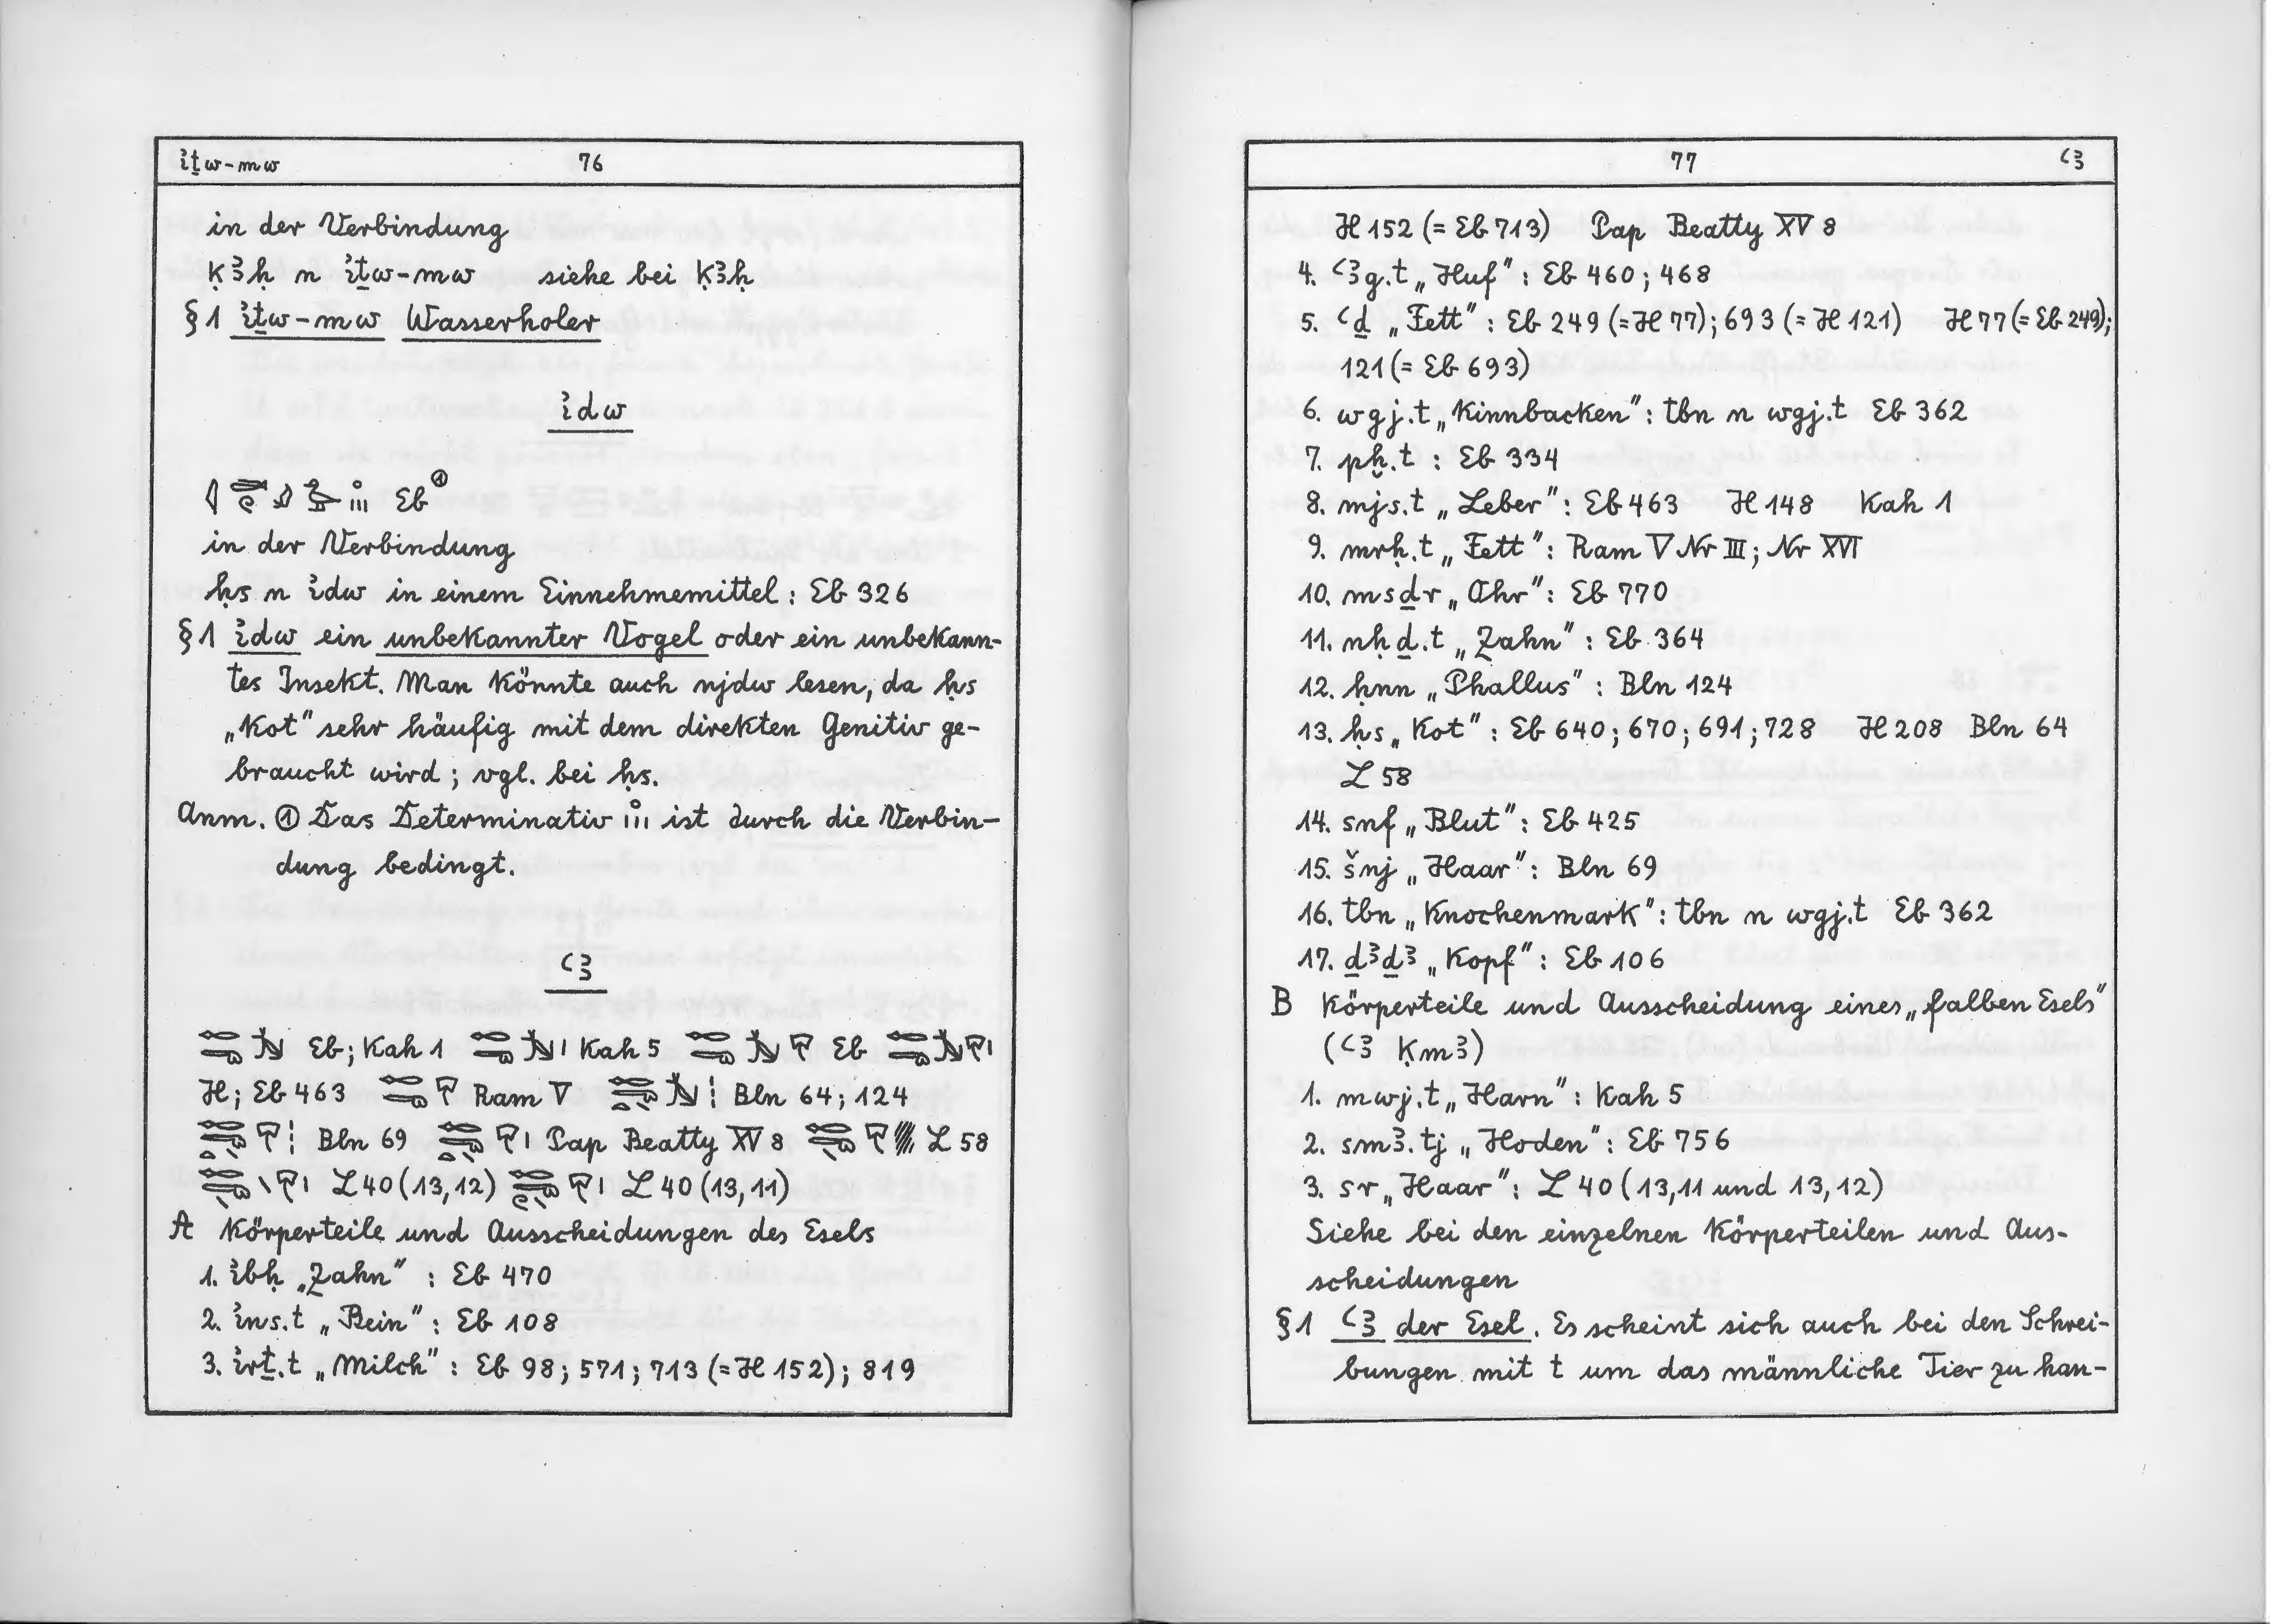 ꞽṯw-mw 76
in der Verbindung
ḳꜣḥ n ꞽṯw-mw siehe bei ḳꜣḥ
§1 ꞽṯw-mw Wasserholer
ꞽdw
Eb ①
in der Verbindung
ḥs n ꞽdw in einem Einnehmemittel: Eb 326
§1 ꞽdw ein unbekannter Vogel oder ein unbekann-
tes Insekt. Man könnte auch njdw lesen, da ḥs
„Kot" sehr häufig mit dem direkten Genitiv ge-
braucht wird; vgl. bei ḥs.
Anm. ① Das Determinativ ist durch die Verbin-
dung bedingt.
ꜥꜣ
Eb; Kah 1 Kah 5 Eb
H; Eb 463 Ram V Bln 64; 124
Bln 69 Pap Beatty XV 8 L 58
L 40 (13,12) L 40 (13,11)
A Körperteile und Ausscheidungen des Esels
1. ꞽbḥ „Zahn" : Eb 470
2. ꞽns.t „Bein" : Eb 108
3. ꞽrṯ.t „Milch" : Eb 98; 571; 713 (= H 152); 819
77 ꜥꜣ
H 152 (= Eb 713) Pap Beatty XV 8
4. ꜥꜣg.t „Huf" : Eb 460; 468
5. ꜥḏ „Fett" : Eb 249 (= H 77); 693 (= H 121) H 77 (= Eb 249);
121 (= Eb 693)
6. wgj.t „Kinnbacken" : tbn n wgj.t Eb 362
7. pḫ.t : Eb 334
8. mjs.t „Leber" : Eb 463 H 148 Kah 1
9. mrḥ.t „Fett" : Ram V Nr III; Nr XVI
10. msḏr „Ohr" : Eb 770
11. nḥḏ.t „Zahn" : Eb 364
12. ḥnn „Phallus" : Bln 124
13. ḥs „Kot" : Eb 640; 670; 691; 728 H 208 Bln 64
L 58
14. snf „Blut" : Eb 425
15. šnj „Haar" : Bln 69
16. tbn „Knochenmark" : tbn n wgj.t Eb 362
17. ḏꜣḏꜣ „Kopf" : Eb 106
B Körperteile und Ausscheidung eines „falben Esels"
(ꜥꜣ ḳmꜣ)
1. mwj.t „Harn" : Kah 5
2. smꜣ.tj „Hoden" : Eb 756
3. sr „Haar" : L 40 (13,11 und 13,12)
Siehe bei den einzelnen Körperteilen und Aus-
scheidungen
§1 ꜥꜣ der Esel. Es scheint sich auch bei den Schrei-
bungen mit t um das männliche Tier zu han-